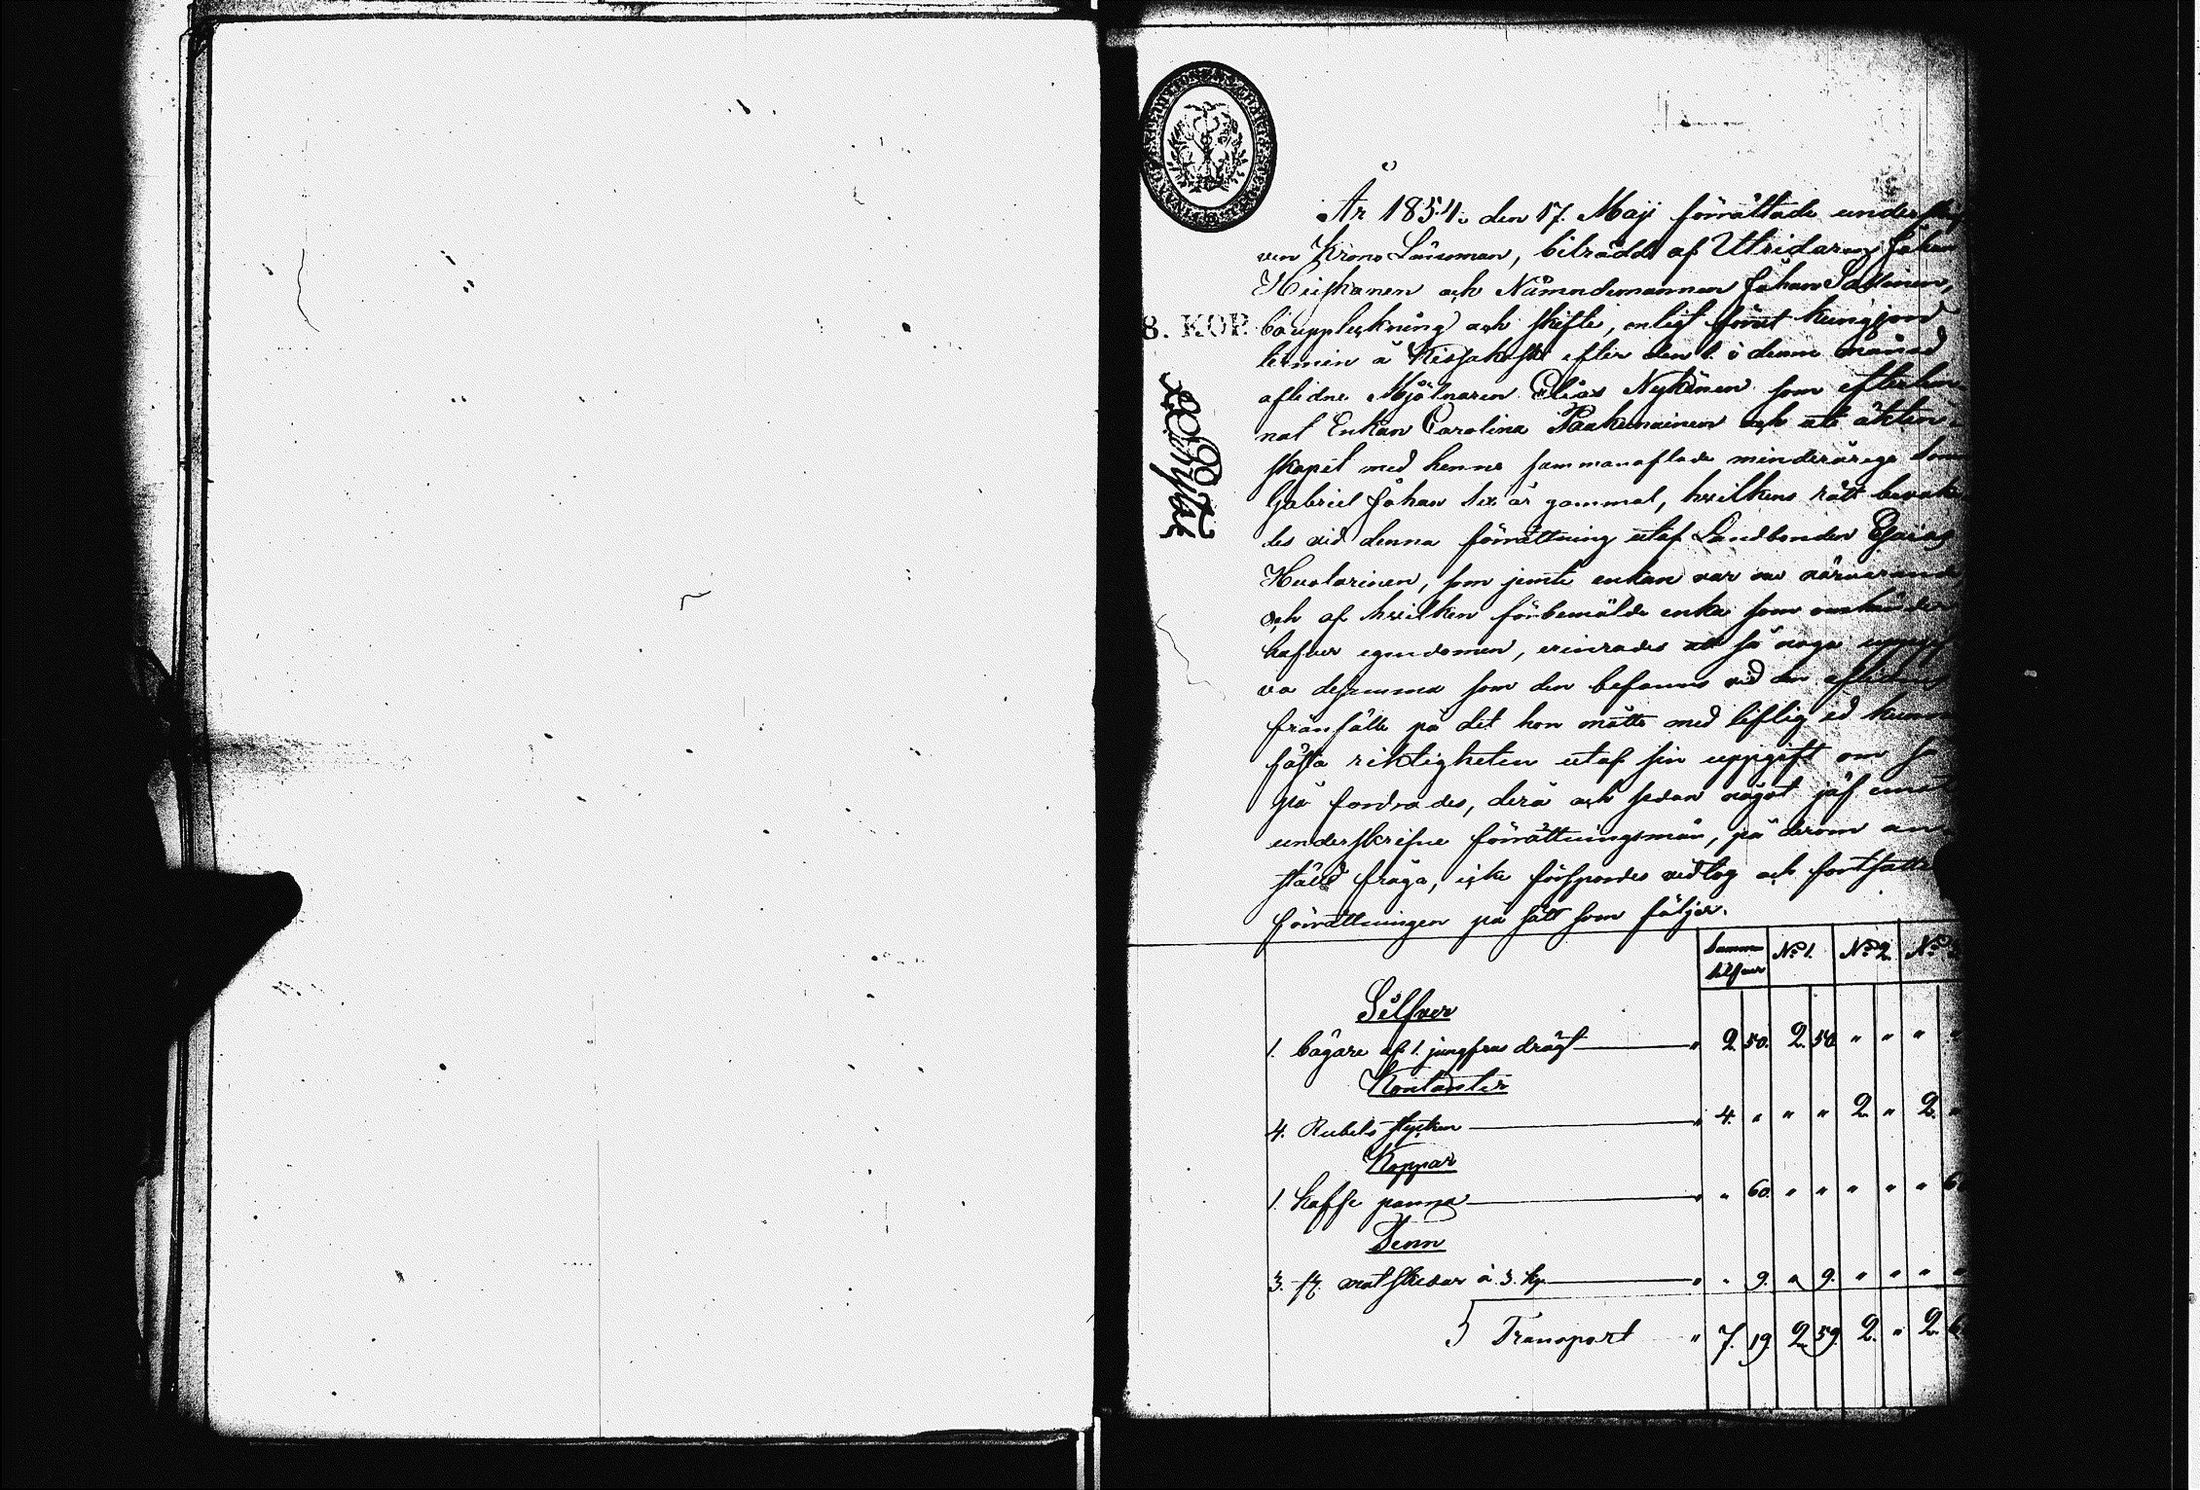 År 1854. den 17. Maji förrättade underskrif
ven Krono Länsman, biträdd af Utridaren Johan
Heiskanen och Nämndemannen Johan
8. KOP. bouppteckning och skifte, enligt förut kungjord
termin å efter den 1. i denne månad
aflidne Mjölnaren Elias Nykänen som efterlem-
nat Enkan Carolina Paakunainen och uti äkten-
skapet med henne sammanaflade minderårige Son
Gabriel Johan sex år gammal, hvilkens rätt bevaka-
des vid denna förrättning utaf Landbonden Esaias
Huolarinen, som jemte enkan var nu närvarande
och af hvilken förbemälde enka som omhänder
hafver egendomen, erinrades att så noga uppgif
va desamma som den befanns vid den aflidnes
frånfälle på det hon måtte med liflig ed kunna
fästa riktigheten utaf sin uppgift om så
på fordrades, derå och sedan något jäf emot
underskrifne förrättningsmän, på derom an-
ställd fråga, icke förspordes vidtog och fortsatte
förrättningen på sätt som följer.
Summa Silfver No 1. No 2. No 3.
Silfver
1. bägare af 1. jungfrus drägt " 2. 50. 2. 50 " " " "
Kontanter
4. Rubels stycken " 4. " " " 2. " 2. "
Koppar
1. kaffe panna " " 60. " " " " " 60
Tenn
3. st. matskedar à 3. kp. " " 9. " 9. " " " "
Transport " 7. 19 2 59. 2. " 2. 60